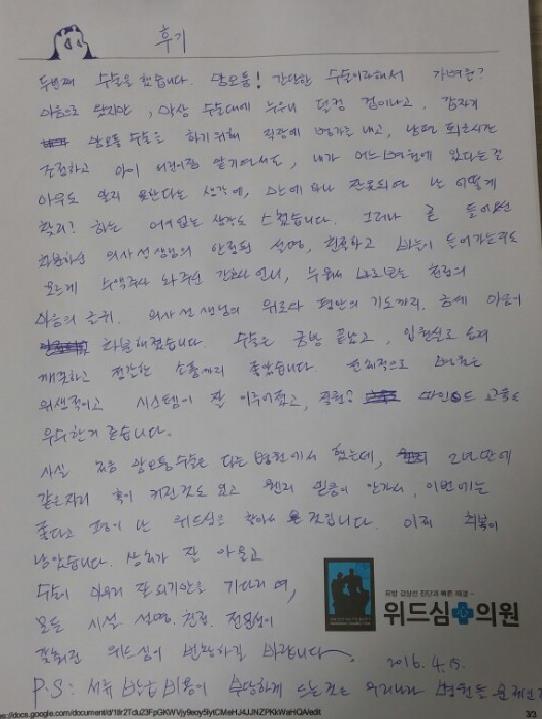 후기
두번째 수술을 했습니다. 맘모톰! 간단한 수술이라해서 가벼운?
마음으로 왔지만, 막상 수술대에 누우니 덜컥 겁이나고, 갑자기
맘모톰 수술을 하기위해 직장에 병가를 내고, 남편 퇴근시간
조절하고 아이 어린이집 맡기면서도, 내가 어느병원에 있다는걸
아무도 알지 못한다는 생각에, 만에 하나 잘못되면 난 어떻게
하지? 하는 어이없는 생각도 스쳤습니다. 그러나 곧 들어오신
의사선생님의 안정된 설명, 친절하고 바늘이 들어가는지도
모르게 수액주사 놔주신 간호사 언니, 누워서 바라보는 천정의
마음의 글귀. 의사선생님의 위로와 평안의 기도까지. 마음이
차분해졌습니다. 수술은 금방 끝났고, 입원실로 옮겨
깨끗하고 정갈한 소품까지 좋았습니다. 전체적으로 병원은
위생적이고 시스템이 잘 이루어졌고, 직원? 마인드 교육도
우수한거 같습니다.
사실 처음 맘모톰수술은 다른 병원에서 했는데, 2년만에
같은자리 혹이 커진것도 있고 웬지 믿음이 안가서, 이번에는
좋다고 평이 난 위드심을 찾아서 온것입니다. 이제 회복이
남았습니다. 상처가 잘 아물고
수술이 마무리 잘 되기만을 기다리며,
모든 시설. 설명. 친절. 전문성이
갖춰진 위드심이 번창하길 바랍니다.
유방 갑상선 진단과 빠른 해결
위드심의원
2016. 4. 15.
P.S: 서류 받는 비용이 상당하게 드는것은 외지나 병원들 문제인지
docs.google.com/document/d/
/edit
3/3